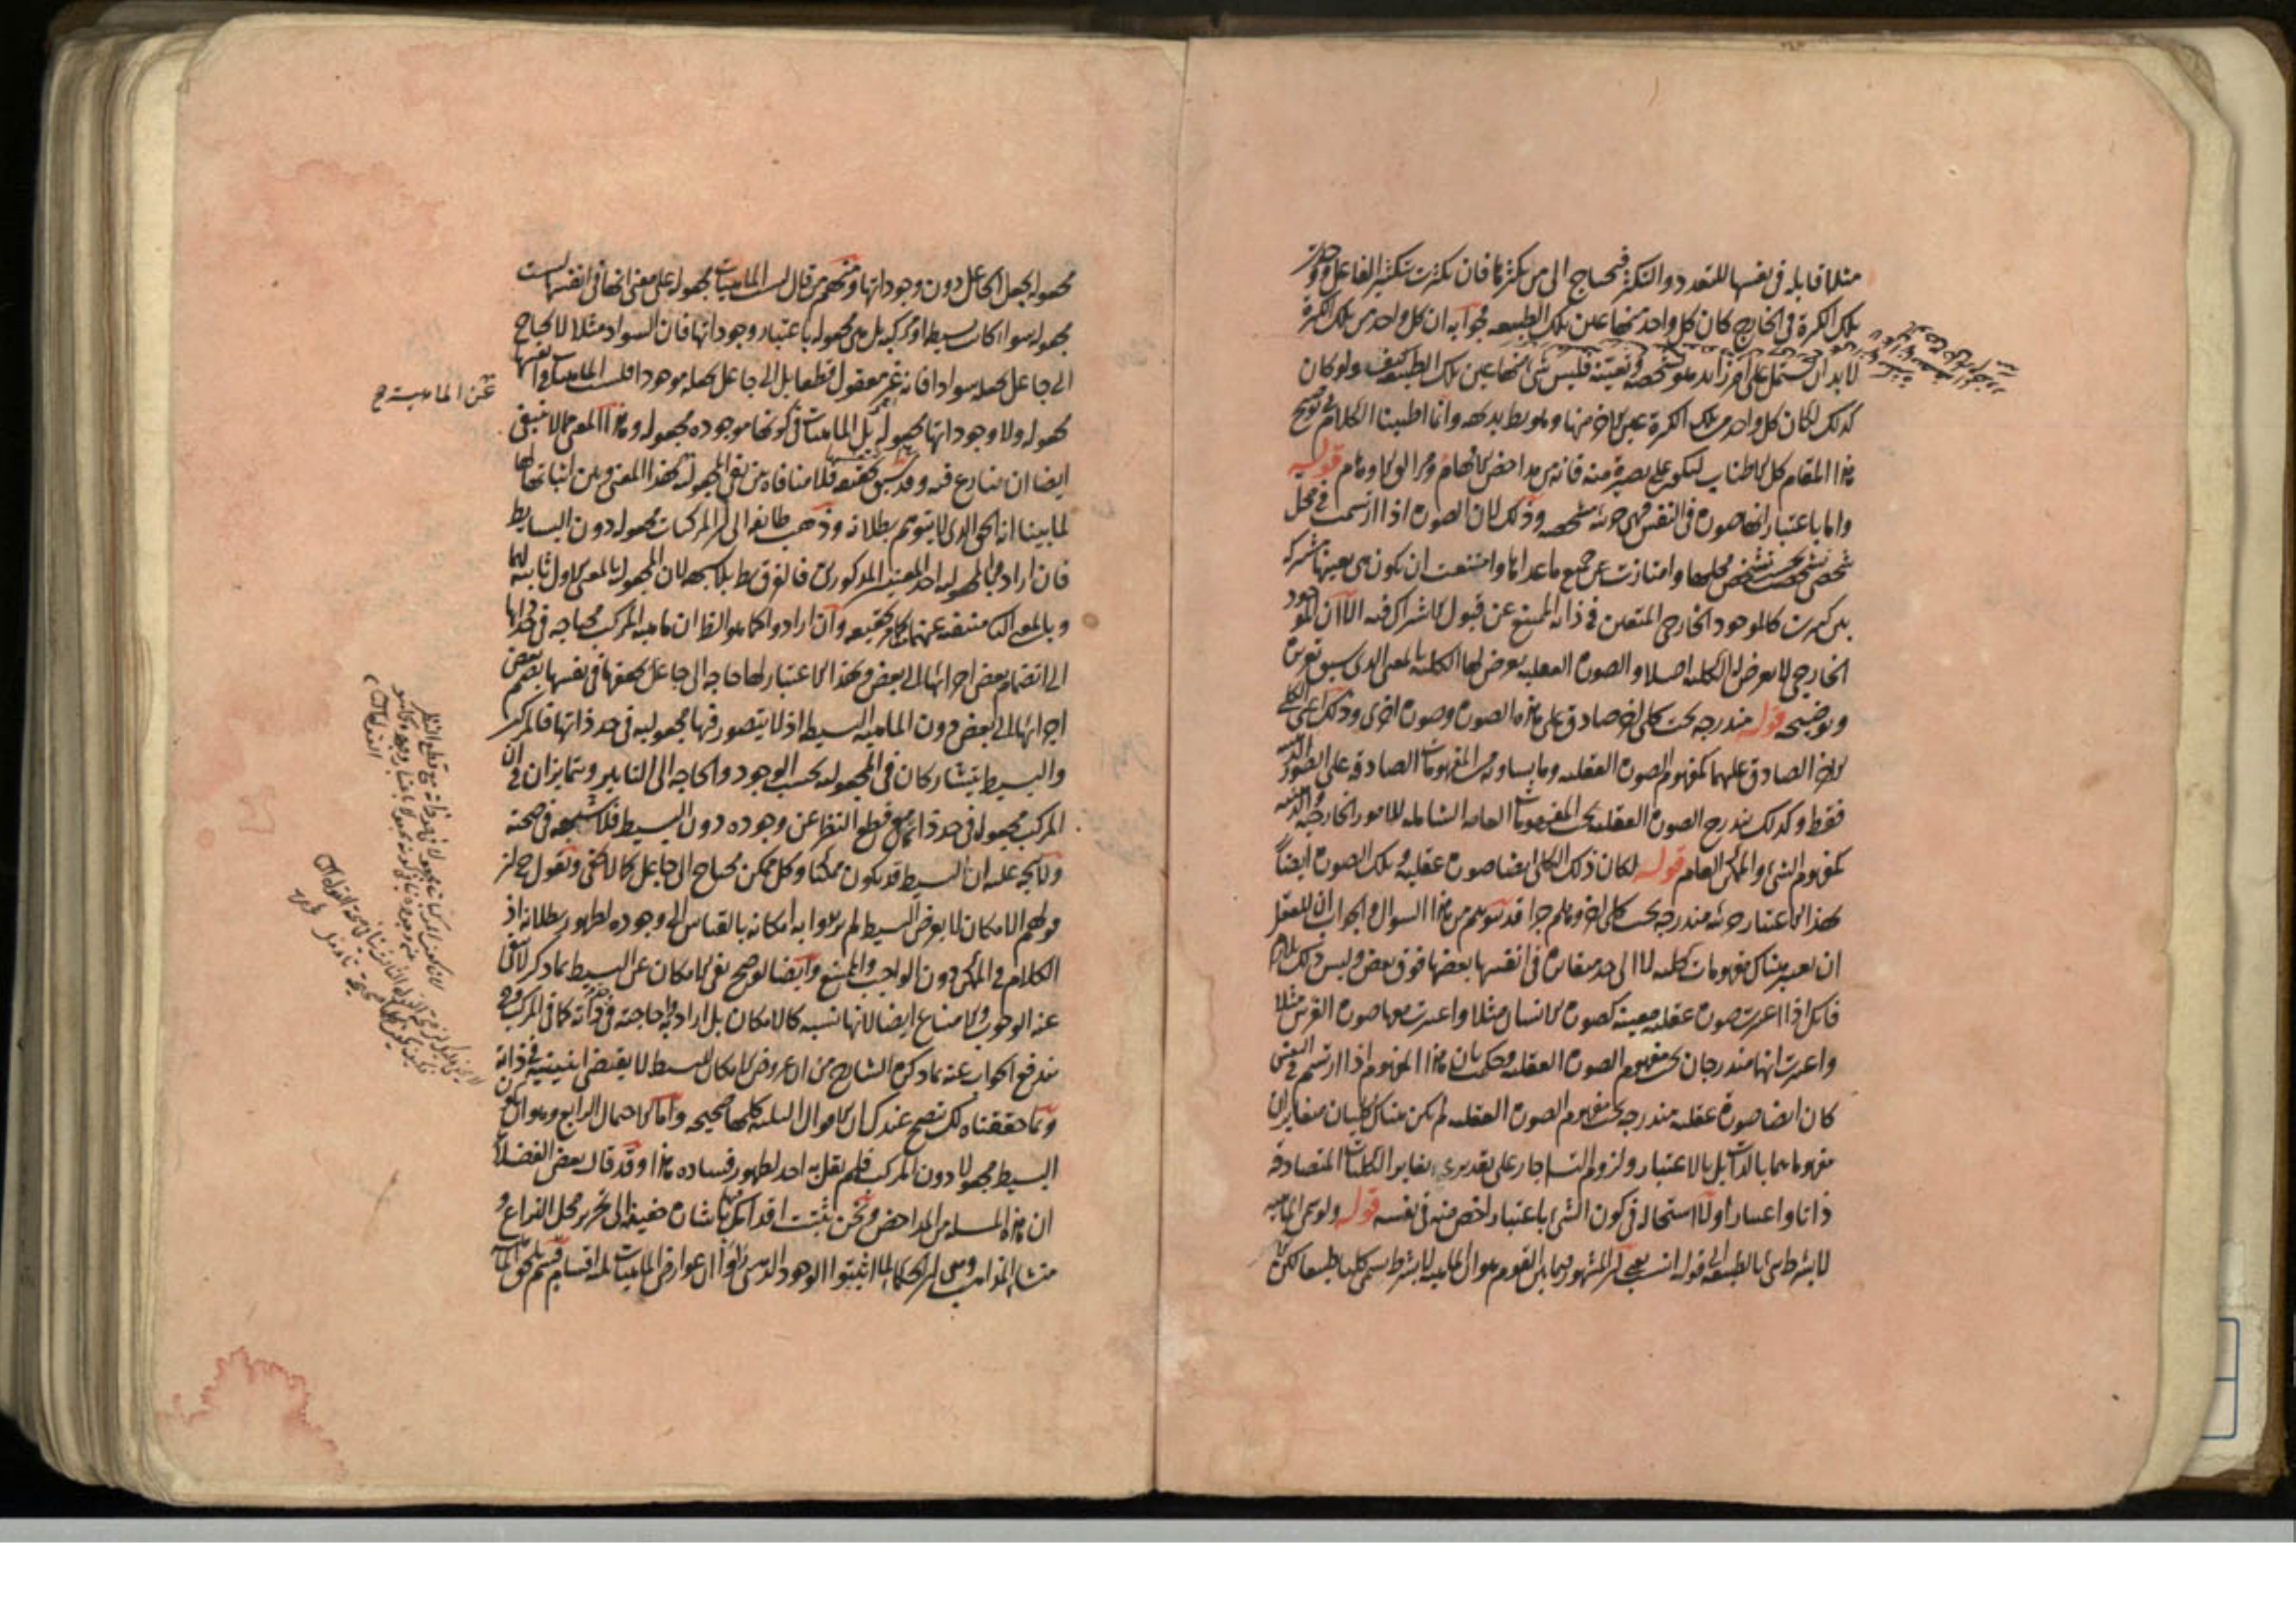 مثلا قابلة فى نفسها للتعدد والتكثر فيحتاج الى من يكثرها فان تكثرت بتكثير الفاعل ووجدت
تلك الكثرة فى الخارج كان كل واحد منها عين تلك الطبيعة فجوابه ان كل واحد من تلك الكثرة
لا بد ان يشتمل على امر زائد هو تشخصه وتعينه فليس شى منها عين تلك الطبيعة كيف ولو كان
كذلك لكان كل واحد من تلك الكثرة عين الاخر منها وهو بط بديهة وانما اطنبنا الكلام فى توضيح
هذا المقام كل الاطناب لتكون على بصيرة منه فانه من مداحض الافهام ومزال الاوهام قوله
واما باعتبار انها صورة فى النفس فهى جزئية شخصية وذلك لان الصورة اذا ارتسمت فى محل
شخصى تشخصت بحسب تشخص محلها وامتازت عن جميع ما عداها وامتنعت ان تكون هى بعينها مشتركة
بين كثيرين كالموجود الخارجى المتعين فى ذاته الممتنع عن قبول الاشتراك فيه الا ان الموجود
الخارجى لا يعرض له الكلية اصلا والصورة العقلية يعرض لها الكلية بالمعنى الذى سبق تعريفه
وتوضيحه قوله مندرجة تحت كلى اخر صادق على هذه الصورة وصورة اخرى وذلك اعنى الكلى
الاخر الصادق عليهما كمفهوم الصورة العقلية وما يساويه من المفهومات الصادقة على الصور الذهنية
فقط وكذلك يندرج الصورة العقلية تحت المفهومات العامة الشاملة للامور الخارجية والذهنية
كمفهوم الشى والممكن العام قوله لكان ذلك الكلى ايضا صورة عقلية وتلك الصورة ايضا
بهذا الاعتبار جزئية مندرجة تحت كلى اخر وهلم جرا قد يتوهم من هذا السوال والجواب ان للعقل
ان يعتبر هناك مفهومات كلية لا الى حد متغايرة فى انفسها بعضها فوق بعض وليس ذلك بلازم
فانك اذا اعتبرت صورة عقلية معينة كصورة الانسان مثلا واعتبرت معها صورة الفرس مثلا
واعتبرت انهما مندرجان تحت مفهوم الصورة العقلية وحكمت بان هذا المفهوم اذا ارتسم فى النفس
كان ايضا صورة عقلية مندرجة تحت مفهوم الصورة العقلية لم يكن هناك كليان متغايران
مفهوماهما بالذات بل بالاعتبار ولزوم التسلسل جار على تقديرى تغاير الكليات المتصادقة
ذاتا واعتبارا ولا استحالة فى كون الشى باعتبار اخص منه فى نفسه قوله ولو سمى الماهية
لا بشرط شى بالطبيعة الى قوله انسب يعنى ان المشهور فيما بين القوم هو ان الماهية لا بشرط تسمى كليا طبيعيا لكن
مجعولة بجعل الجاعل دون وجوداتها ومنهم من قال ليست الماهيات مجعولة على معنى انها فى انفسها ليست
مجعولة سواء كانت بسيطة او مركبة بل هى مجعولة باعتبار وجوداتها فان السواد مثلا لا يحتاج
الى جاعل يجعله سوادا فانه غير معقول قطعا بل الى جاعل يجعله موجودا فليست الماهيات فى انفسها
مجعولة ولا وجوداتها مجعولة بل الماهيات فى كونها موجودة مجعولة وهذا المعنى مما لا ينبغى
عن الماهية صح
ايضا ان يتنازع فيه وقد سبق تحقيقه فلا منافاة بين نفى المجعولية بهذا المعنى وبين اثباتها لها
لما بينا انه الحق الذى لا يتوهم بطلانه وذهب طائفة الى ان المركبات مجعولة دون البسايط
فان ارادوا بالمجعولية احد المعنيين المذكورين فالفرق بط بلا شبهة لان المجعولية بالمعنى الاول ثابتة لهما
وبالمعنى الثانى منتفية عنهما كما مر تحقيقه وان ارادوا كما هو الظ ان ماهية المركب محتاجة فى حد ذاتها
الى انضمام بعض اجزائها الى بعض وبهذا الاعتبار لها حاجة الى جاعل يحققها فى نفسها بضم بعض
اجزائها الى بعض دون الماهية البسيطة اذ لا يتصور فيها مجعولية فى حد ذاتها فالمركب
والبسيط يتشاركان فى المجعولية بحسب الوجود والحاجة الى التاثير ويتمايزان فى ان
المركب مجعول فى حد ذاته مع قطع النظر عن وجوده دون البسيط فلا شبهة فى صحته
ولا يتجه عليه ان البسيط قد يكون ممكنا وكل ممكن يحتاج الى جاعل كما لا يخفى ونقول ح ان
قولهم الامكان لا يعرض البسيط لم يريدوا به امكانه بالقياس الى وجوده لظهور بطلانه اذ
الكلام فى الممكن دون الواجب والممتنع وايضا لو صح نفى الامكان عن البسيط بما ذكر لانتفى
عنه الوجوب والامتناع ايضا لانها نسبة كالامكان بل ارادوا به حاجته فى ذاته كما فى المركب
يندفع الجواب عنه بما ذكره الشارح من ان عروض الامكان للبسيط لا يقتضى اثنينية فى ذاته
وبما حققناه لك يتضح عندك ان الاقوال الثلثة كلها صحيحة واما الاحتمال الرابع وهو ان يكون
البسيط مجعولا دون المركب فلم يقل به احد لظهور فساده هذا وقد قال بعض الفضلاء
ان هذه المسئلة من المداحض ونحن نثبت اقدامك فيها باشارة خفيفة الى تحرير محل النزاع و
منشا المذاهب وهى ان الحكما لما اثبتوا الوجود الذهنى راوا ان عوارض الماهيات ثلثة اقسام قسم يلحق الماهية